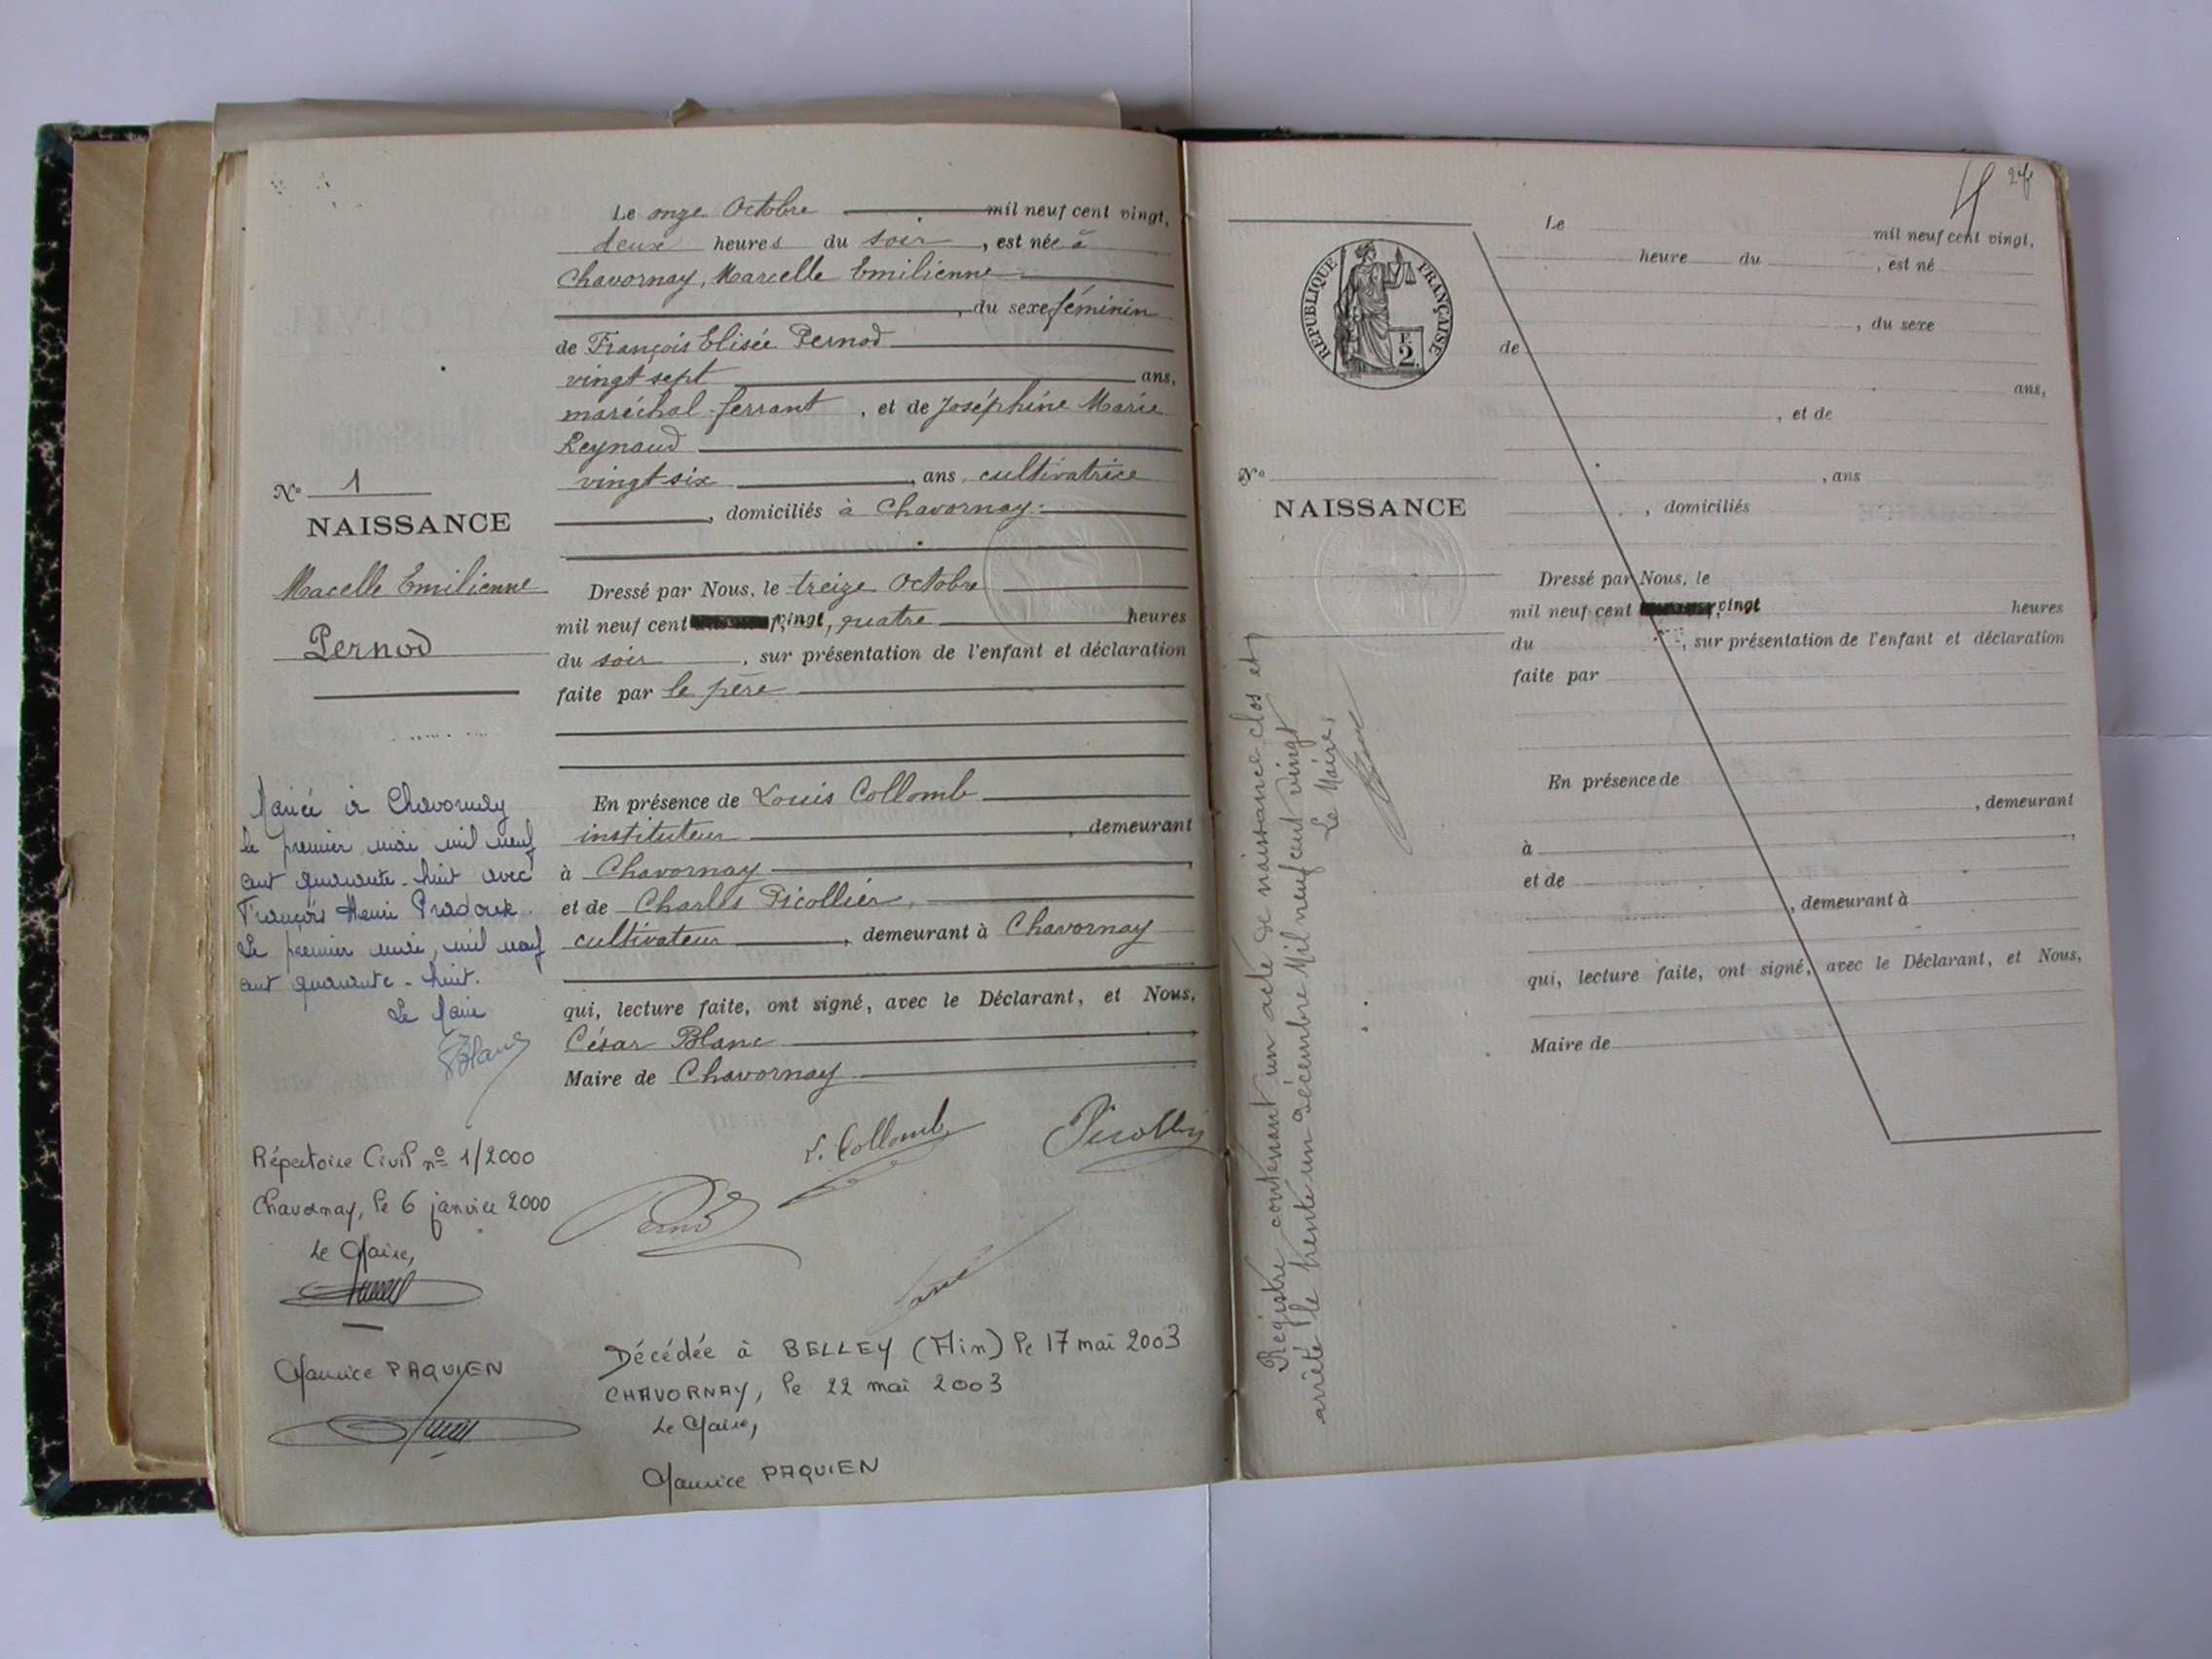 Le onze Octobre mil neuf cent vingt,
deux heures du soir, est née à
Chavornay, Marcelle Emilienne
, du sexe féminin
de François Elisée Pernod
vingt sept ans,
maréchal-ferrant, et de Joséphine Marie
Reynaud
vingt-six ans, cultivatrice
, domiciliés à Chavornay.
N° 1
NAISSANCE
Macelle Emilienne
Pernod
Dressé par Nous, le treize Octobre
mil neuf cent vingt, quatre heures
du soir, sur présentation de l'enfant et déclaration
faite par le père
En présence de Louis Collomb
instituteur, demeurant
à Chavornay,
et de Charles Picollier,
cultivateur, demeurant à Chavornay
qui, lecture faite, ont signé, avec le Déclarant, et Nous,
César Blanc
Maire de Chavornay
L. Collomb
Pernod
Mariée à Chavornay
le premier mai mil neuf
cent quarante-huit avec
François Henri Pradoux.
Le premier mai, mil neuf
cent quarante-huit.
Le Maire
Blanc
Répertoire Civil n° 1/2000
Chavornay, le 6 janvier 2000
Le Maire,
Maurice PAQUIEN
Décédée à BELLEY (Ain) le 17 mai 2003
CHAVORNAY, le 22 mai 2003
Le Maire,
Maurice PAQUIEN
RÉPUBLIQUE FRANÇAISE
F.
2.
Le mil neuf cent vingt,
heure du , est né
, du sexe
de
ans,
, et de
N°
NAISSANCE
, ans
, domiciliés
Dressé par Nous, le
mil neuf cent vingt heures
du , sur présentation de l'enfant et déclaration
faite par
En présence de
, demeurant
à
et de
, demeurant à
qui, lecture faite, ont signé, avec le Déclarant, et Nous,
Maire de
Registre contenant un acte de naissance clos et
arrêté le trente un Décembre Mil neuf cent vingt
Le Maire,